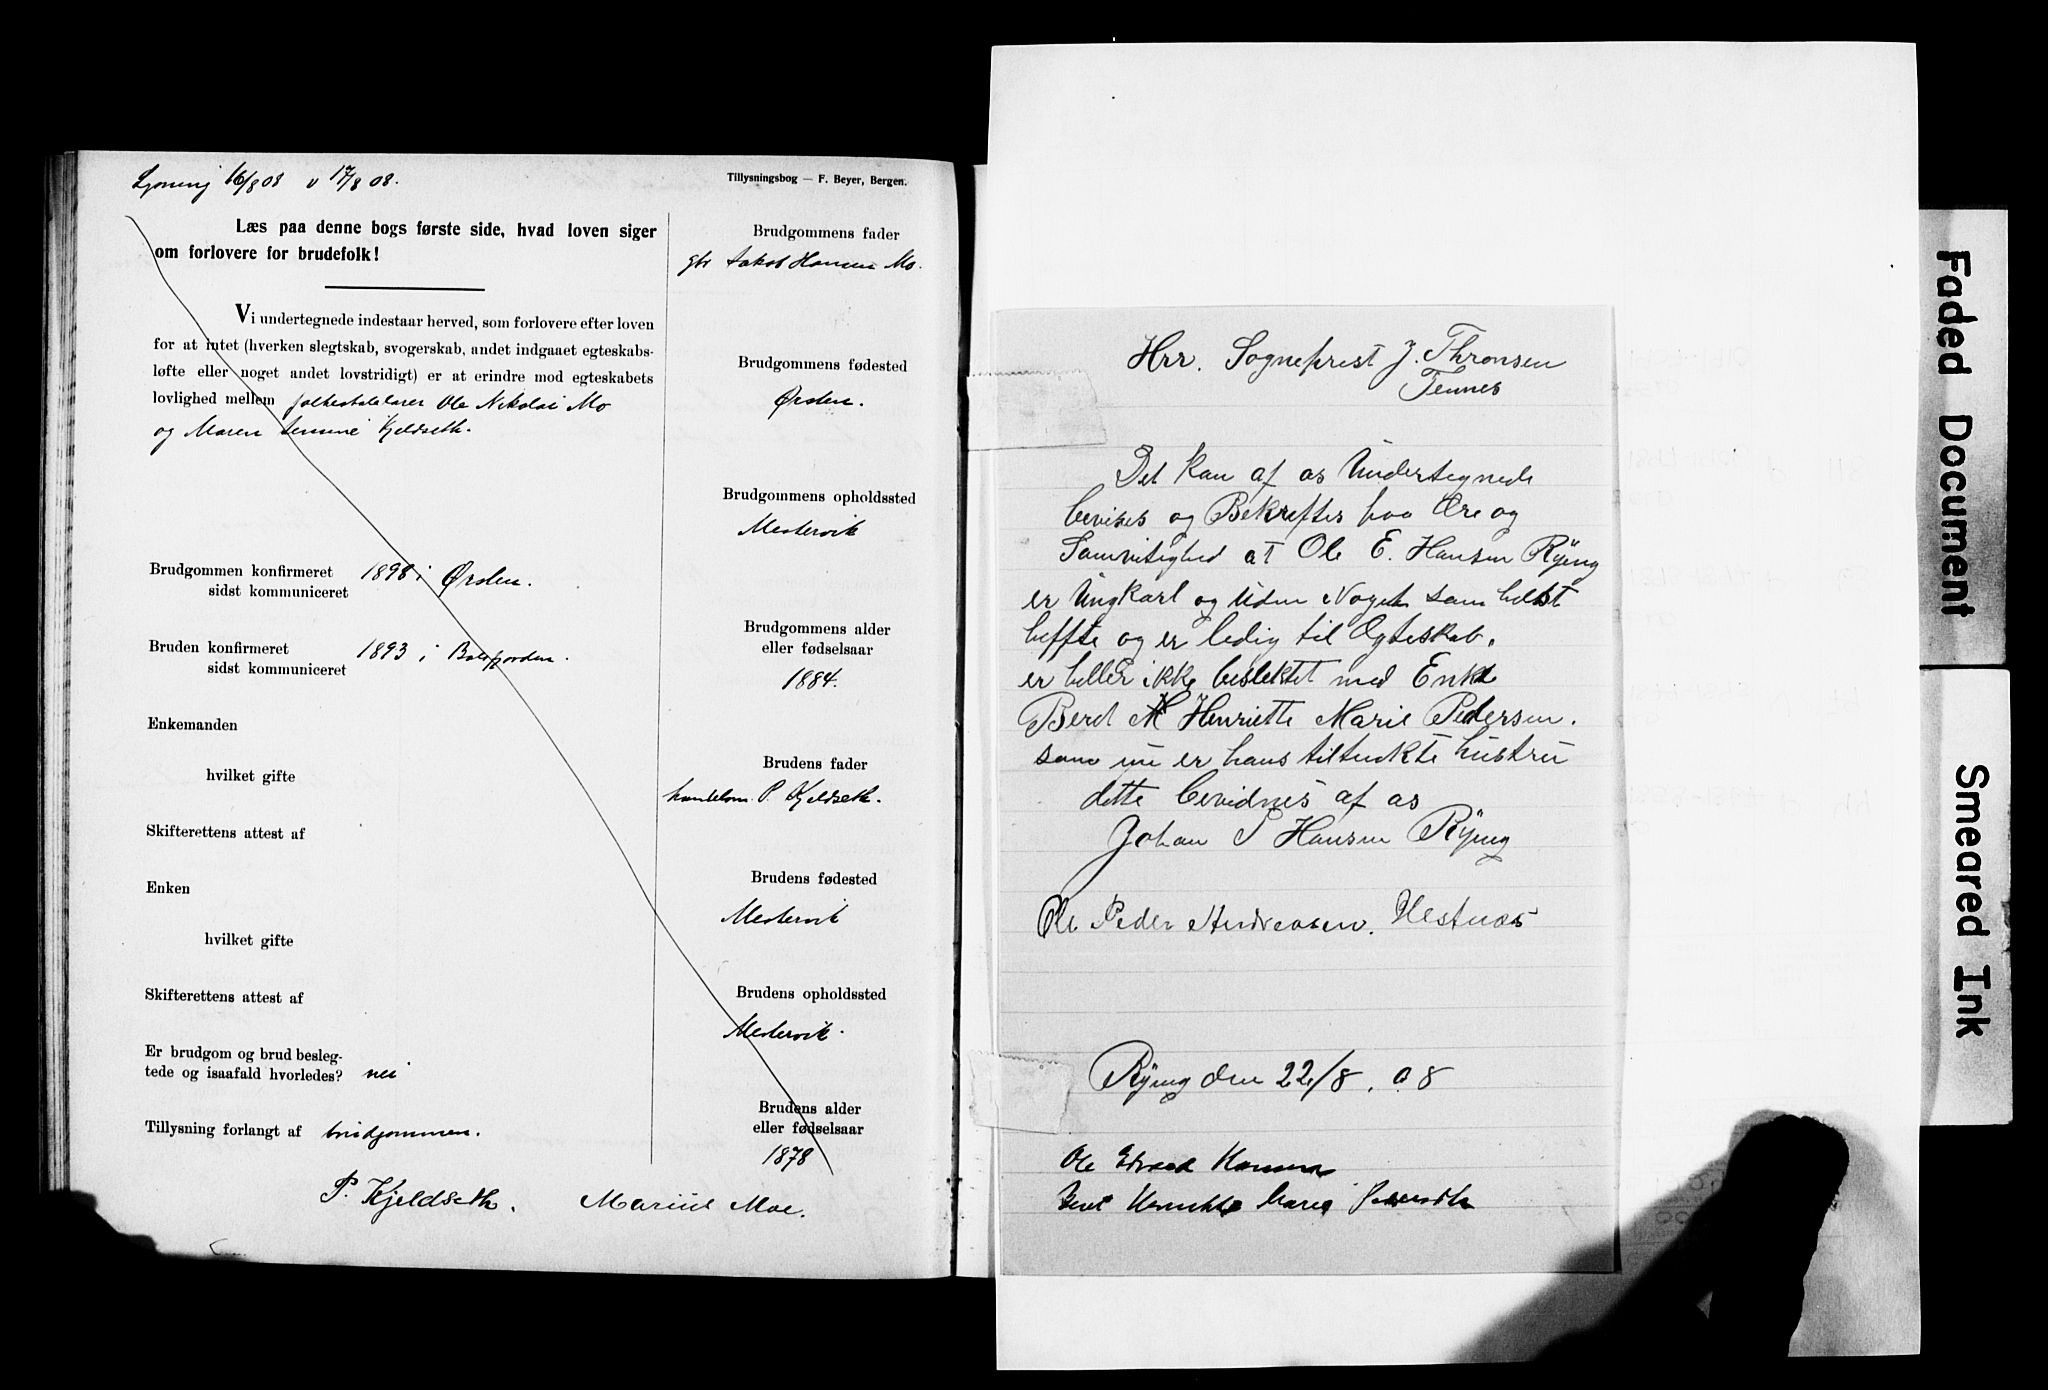 Lysning 16/8 08 v 17/8 08.
Tillysningsbog — F. Beyer, Bergen.
Læs paa denne bogs første side, hvad loven siger
om forlovere for brudefolk!
Vi undertegnede indestaar herved, som forlovere efter loven
for at intet (hverken slegtskab, svogerskab, andet indgaaet egteskabs-
løfte eller noget andet lovstridigt) er at erindre mod egteskabets
lovlighed mellem Ole Nikolai Mo
og Maren Jensine Kjeldseth.
Brudgommen konfirmeret 1898 i Ørsten.
sidst kommuniceret
Bruden konfirmeret 1893 i Balsfjorden.
sidst kommuniceret
Enkemanden
hvilket gifte
Skifterettens attest af
Enken
hvilket gifte
Skifterettens attest af
Er brudgom og brud besleg-
tede og isaafald hvorledes? nei
Tillysning forlangt af brudgommen.
P. Kjeldseth. Marius Moe.
Brudgommens fader
gbr Jakob Hansen Mo.
Brudgommens fødested
Ørsten.
Brudgommens opholdssted
Mestervik
Brudgommens alder
eller fødselsaar
1884.
Brudens fader
handelsm. P. Kjeldseth.
Brudens fødested
Mestervik
Brudens opholdssted
Mestervik.
Brudens alder
eller fødselsaar
1878
Hrr. Sogneprest J. Thronsen
Tennes
Det kan af os Undertegnede
bevises og Bekreftes paa Ære og
Samvitighed at Ole E. Hansen Rÿing
er Ungkarl og Uden Noget som helst
heffte og er ledig til Egteskab.
er heller ikke beslektet med Enke
Berd M Henriette Marie Pedersen.
som nu er hans tiltenkte hustru
dette bevidnes af os
Johan P Hansen Rÿing
Ole Peder Andreasen. Vestnæs
Rÿing den 22/8. 08
Ole Edvard Hansen
Berit Henrikke Marie
Faded Document
Smeared Ink